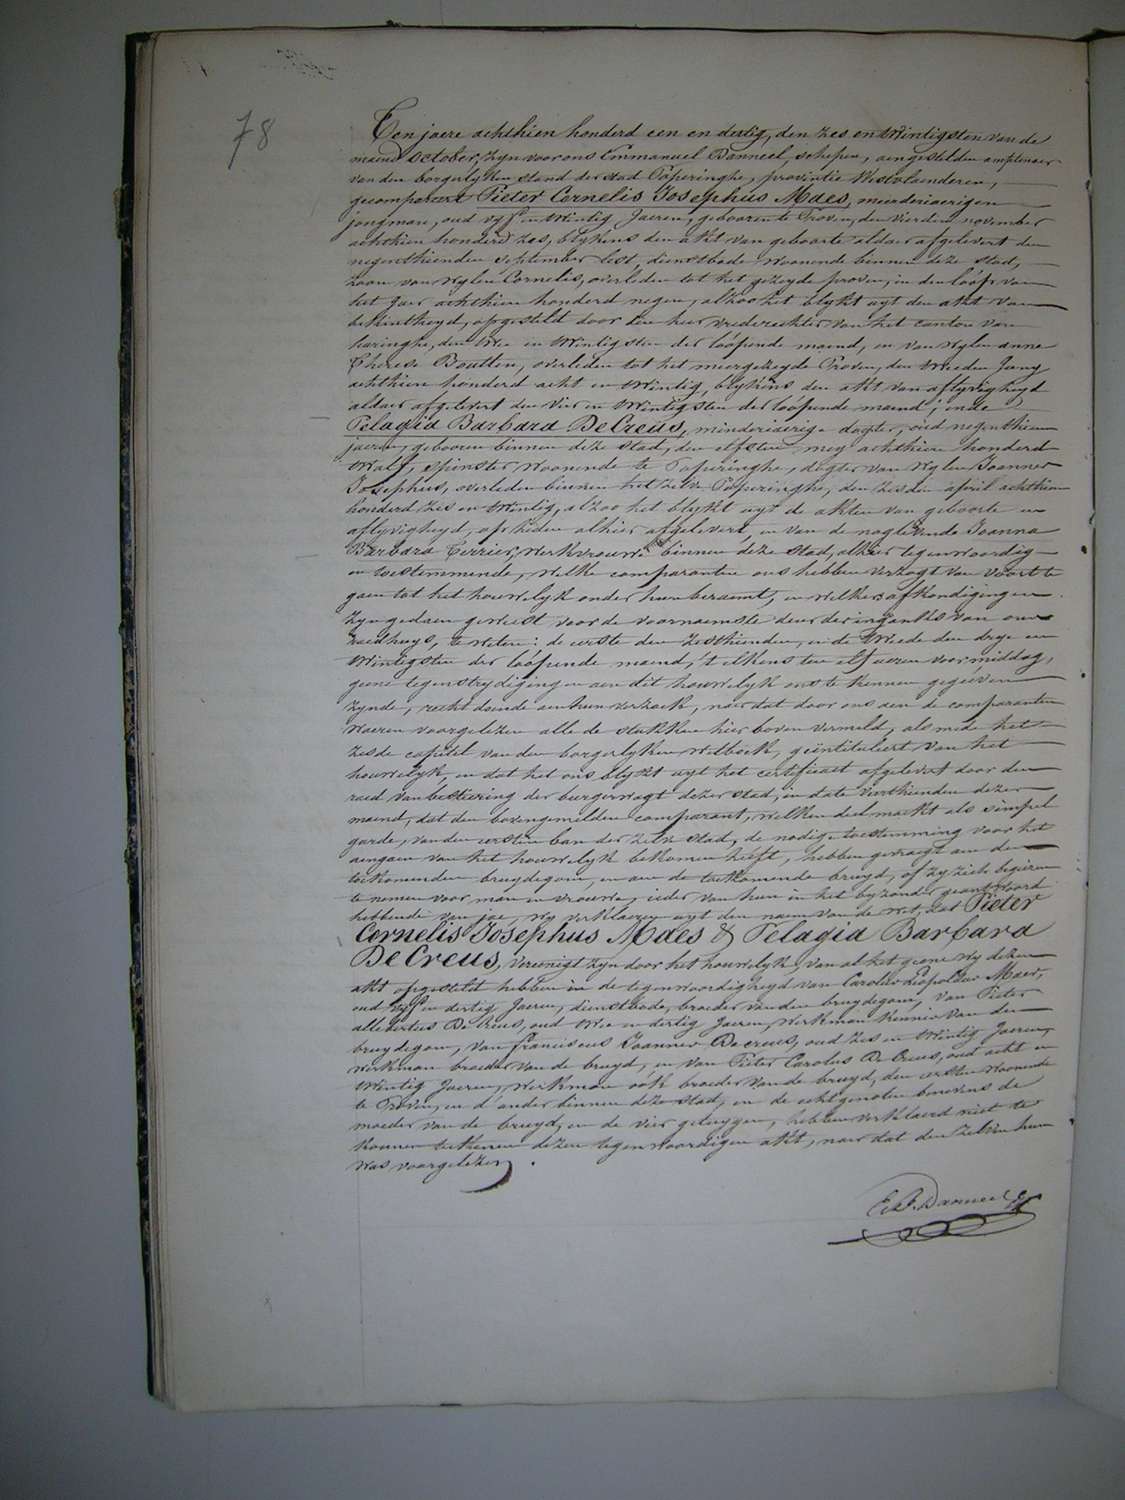 78
Ten jaere achthien honderd een en dertig, den zes en twintigsten van de
maend october, zyn voor ons Emmanuel Banneel, schepen, aengestelden amptenaer
van den borgerlyken stand der stad Poperinghe, provintie Westvlaenderen,
gecompareert Pieter Cornelis Josephus Maes, meerderjaerigen
jongman, oud vyf en twintig Jaeren, gebooren te Proven, den vierden november
achthien honderd zes, blykens den akt van geboorte aldaer afgelevert den
negenthienden september lest, dienstbode woonende binnen deze stad,
zoon van wylen Cornelis, overleden tot het gezeyde proven, in den loop van
het Jaer achthien honderd negen, alzoo het blykt uyt den akt van
bekentheyd, opgesteld door den heer vrederechter van het canton van
haringhe, den twee en twintigsten der loopende maend, en van wylen anne
Therese Boutten, overleden tot het meergezeyde Proven, den tweeden Juny
achthien honderd acht en twintig, blykens den akt van aflyvigheyd
aldaer afgelevert den vier en twintigsten der loopende maend; ende
Pelagia Barbara De Creus, minderjaerige dogter, oud negenthien
jaeren, gebooren binnen deze stad, den elfsten mey achthien honderd
twalf, spinster, woonende te Poperinghe, dogter van wylen Joannes
Josephus, overleden binnen het zelve Poperinghe, den zesden april achthien
honderd zes en twintig, alzoo het blykt uyt de akten van geboorte en
aflyvigheyd, op heden alhier afgelevert, en van de naglevende Joanna
Barbara Terrier, werkvrouwe binnen deze stad, alhier tegenwoordig
en toestemmende, welke comparanten ons hebben verzogt van voort te
gaen tot het houwelyk onder hun beraemt, en welkers afkondigingen
zyn gedaen geweest voor de voornaemste deur des ingangs van ons
raedhuys, te weten: de eerste den zesthienden, en de tweede den drye en
twintigsten der loopende maend, 't elkens ten elf ueren voormiddag,
geene tegenstrydigingen aen dit houwelyk ons te kennen gegeeven
zynde, recht doende aen hun verzoek, naer dat door ons aen de comparanten
waeren voorgelezen alle de stukken hier boven vermeld, als mede het
zesde capitel van den borgerlyken wetboek, geïntituleert van het
houwelyk, en dat het ons blykt uyt het certificaet afgelevert door den
raed van bestiering der burgerwagt dezer stad, in date veerthienden dezer
maend, dat den bovengemelden comparant, welken deel maekt als simpel
garde, van den eersten ban der zelve stad, de nodige toestemming voor het
aengaen van het houwelyk bekomen heeft, hebben gevraegt aen den
toekomenden bruydegom, en aen de toekomende bruyd, of zy zich begeeren
te nemen voor man en vrouwe, ieder van hun in het byzonder geantwoord
hebbende van jae, wy verklaeren uyt den naem van de wet, dat Pieter
Cornelis Josephus Maes & Pelagia Barbara
De Creus, vereenigt zyn door het houwelyk, van al het geene wy dezen
akt opgestelt hebben in de tegenwoordigheyd van Carolus Leopoldus Maes,
oud vyf en dertig Jaeren, dienstbode, broeder van den bruydegom, van Pieter
Albertus De Creus, oud twee en dertig Jaeren, werkman kennis van den
bruydegom, van franciscus Joannes De creus, oud zes en twintig Jaeren,
werkman broeder van de bruyd, en van Pieter Carolus De Creus, oud acht en
twintig Jaeren, werkman ook broeder van de bruyd, den eersten woonende
te Proven, en d'ander binnen deze stad, en de echtgenoten benevens de
moeder van de bruyd, en de vier getuygen, hebben verklaerd niet te
konnen teekenen dezen tegenwoordigen akt, naer dat den zelven hun
was voorgelezen.